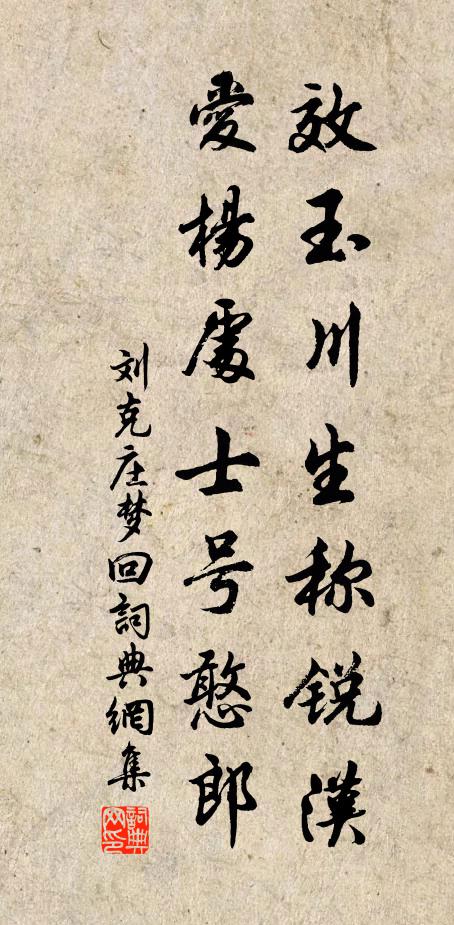 效玉川生称锐汉
愛楊處士号憨郎
刘克庄梦回詞典網集
詞典網印